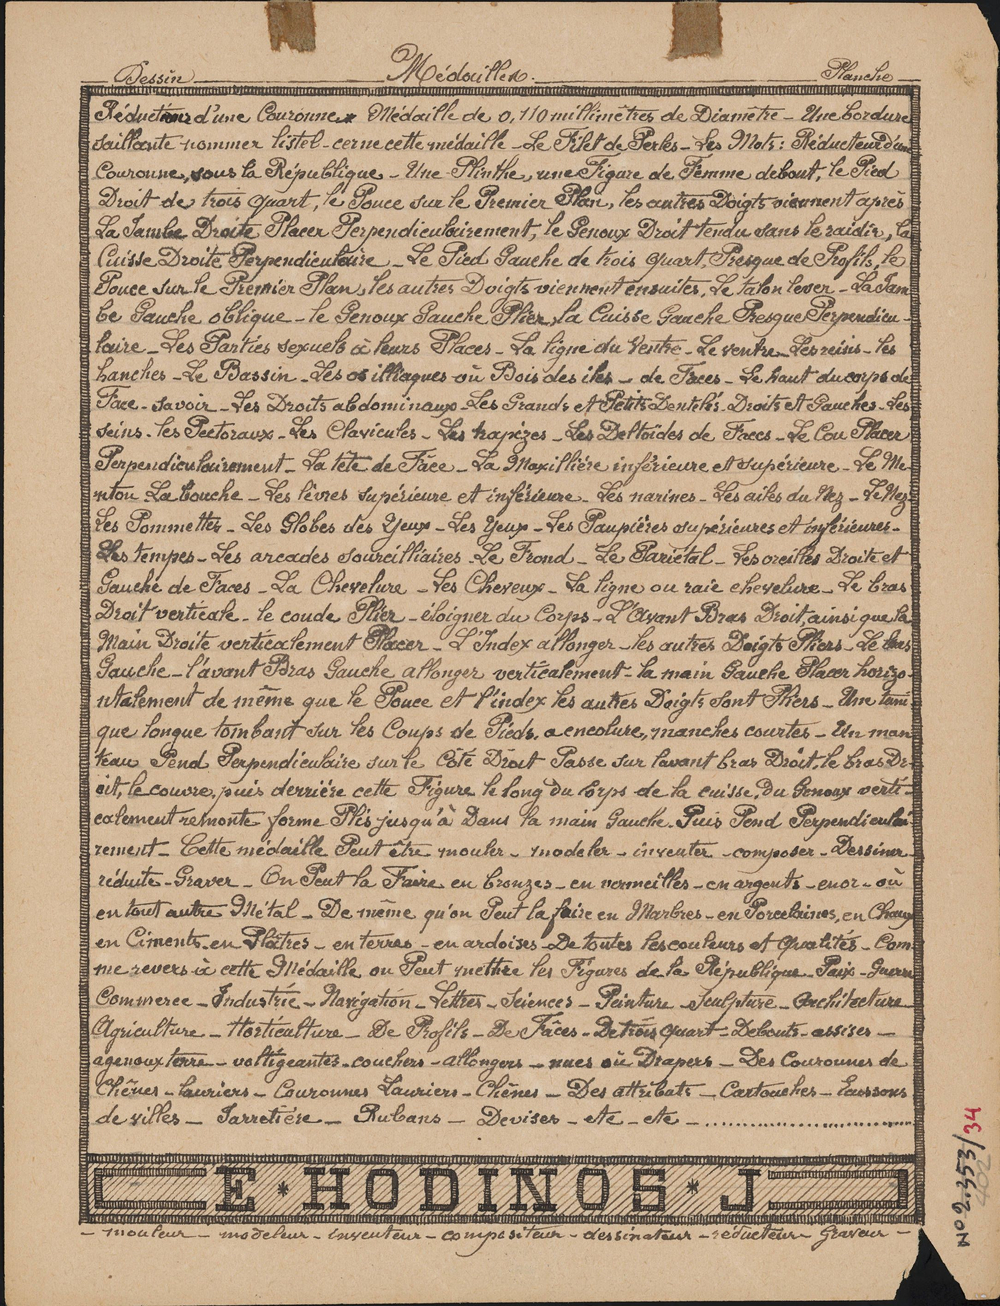 Dessin Médailles. Planche
Réductions d'une Couronne Médaille de 0,110 millimètres de Diamètre - Une bordure
saillante nommer listel - cerne cette médaille - Le Filet de Perles - Les Mots : Réducteur d'une
Couronne, sous la République - Une Plinthe, une Figure de Femme debout, le Pied
Droit de trois quart, le Pouce sur le Premier Plan, les autres Doigts viennent après
La Jambe Droite Placer Perpendiculairement, le Genoux Droit tendu sans le raidir, la
Cuisse Droite Perpendiculaire - Le Pied Gauche de trois quart, Presque de Profils, le
Pouce sur le Premier Plan, les autres Doigts viennent ensuites, Le talon lever - La Jam
be Gauche oblique - le Genoux Gauche Plier, la Cuisse Gauche Presque Perpendicu -
laire - Les Parties sexuels à leurs Places - La ligne du Ventre - Le ventre - Les reins - les
hanches - Le Bassin - Les os illiaques où Bois des iles - de Faces - Le haut du corps de
Face - savoir - Les Droits abdominaux - Les Grands et Petits Dentelés - Droits et Gauches - Les
seins - les Pectoraux - Les Clavicules - Les trapèzes - Les Deltoïdes de Faces - Le Cou Placer
Perpendiculairement - La tête de Face - La Maxillière inférieure et supérieure - Le Me-
nton La bouche - Les lèvres supérieure et inférieure - Les narines - Les ailes du Nez - Le Nez -
Les Pommettes - Les Globes des Yeux - Les Yeux - Les Paupières supérieures et inférieures -
Les tempes - Les arcades sourcilliaires - Le Frond - Le Pariétal - Les oreilles Droite et
Gauche de Faces - La Chevelure - Les Cheveux - La ligne ou raie chevelure - Le bras
Droit verticale - le coude Plier - éloigner du Corps - L'Avant Bras Droit, ainsi que la
Main Droite verticalement Placer - L'Index allonger - les autres Doigts Pliers - Le bras
Gauche - l'avant Bras Gauche allonger verticalement - la main Gauche Placer horizo-
ntalement de même que le Pouce et l'index les autres Doigts sont Pliers - Une tuni
que longue tombant sur les Coups de Pieds, a encolure, manches courtes - Un man
teau Pend Perpendiculaire sur le Côté Droit Passe sur l'avant bras Droit, le bras Dr-
oit, le couvre, puis derrière cette Figure le long du corps de la cuisse, du Genoux verti-
calement remonte forme Plis jusqu'à Dans la main Gauche. Puis Pend Perpendiculai
rement - Cette médaille Peut être mouler - modeler - inventer - composer - Dessiner -
réduite - Graver - On Peut la Faire en bronzes - en vermeilles - en argents - en or - où
en tout autre Métal - De même qu'on Peut la faire en Marbres - en Porcelaines, en Chaux
en Ciments - en Plâtres - en terres - en ardoises - De toutes les couleurs et Qualités - Com
me revers à cette Médaille ou Peut mettre les Figures de la République - Paix - Guerre
Commerce - Industrie - Navigation - Lettres - Sciences - Peinture - Sculpture - Architecture
Agriculture - Horticulture - De Profils - De Fâces - De trois quart - Debouts - assises -
agenoux terre - voltigeantes - couchers - allongers - nues où Drapers - Des Couronnes de
Chênes - lauriers - Couronnes Lauriers - Chênes - Des attributs - Cartouches - Ecussons
de villes - Jarretière - Rubans - Devises - etc - etc - ....................
E * HODINOS * J
- mouleur - modeleur - inventeur - compositeur - dessinateur - réducteur - graveur -
No 2.353/34
402